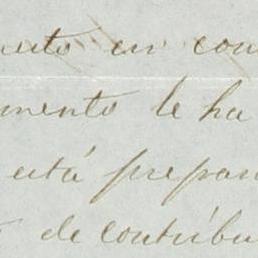 uesto en con
mento le ha
está prepar
de contribu